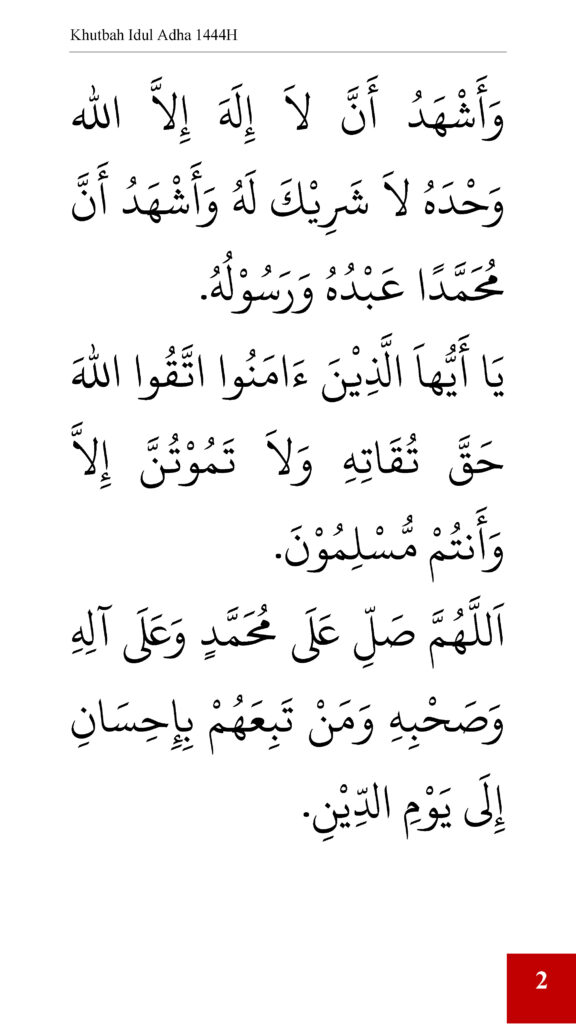 Khutbah Idul Adha 1444H
وَأَشْهَدُ أَنَّ لاَ إِلَهَ إِلاَّ الله
وَحْدَهُ لاَ شَرِيْكَ لَهُ وَأَشْهَدُ أَنَّ
مُحَمَّدًا عَبْدُهُ وَرَسُوْلُهُ.
يَا أَيُّهاَ الَّذِيْنَ ءَامَنُوا اتَّقُوا اللهَ
حَقَّ تُقَاتِهِ وَلاَ تَمُوْتُنَّ إِلاَّ
وَأَنتُمْ مُّسْلِمُوْنَ.
اَللَّهُمَّ صَلِّ عَلَى مُحَمَّدٍ وَعَلَى آلِهِ
وَصَحْبِهِ وَمَنْ تَبِعَهُمْ بِإِحِسَانِ
إِلَى يَوْمِ الدِّيْنِ.
2